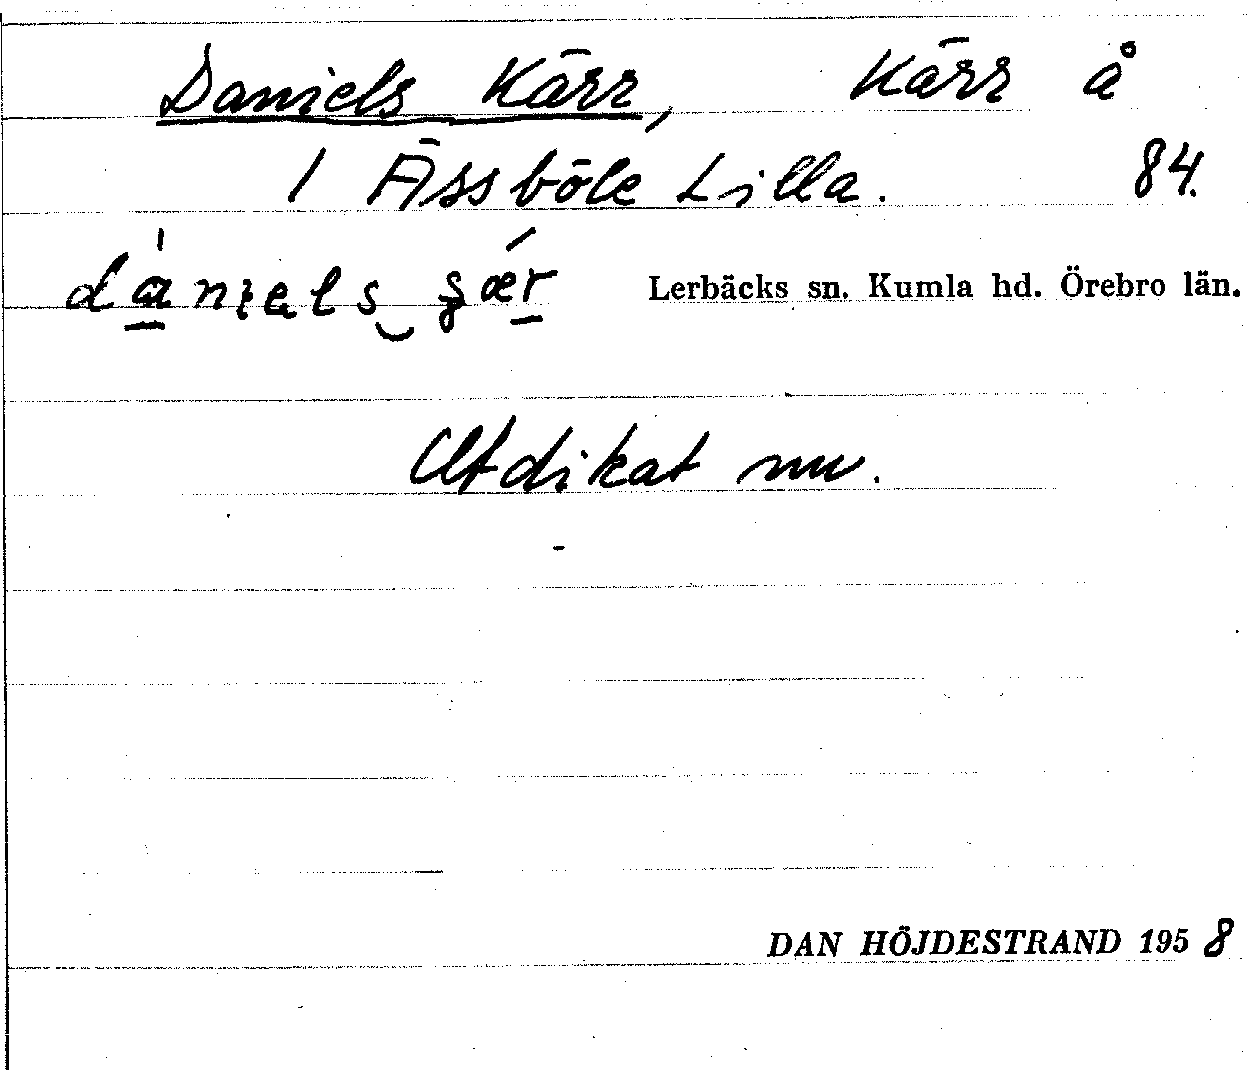 Daniels Kärr, Kärr å
1 Åssböle Lilla. 84.
Lerbäcks sn. Kumla hd. Örebro län.
Utdikat nu.
DAN HÖJDESTRAND 1958